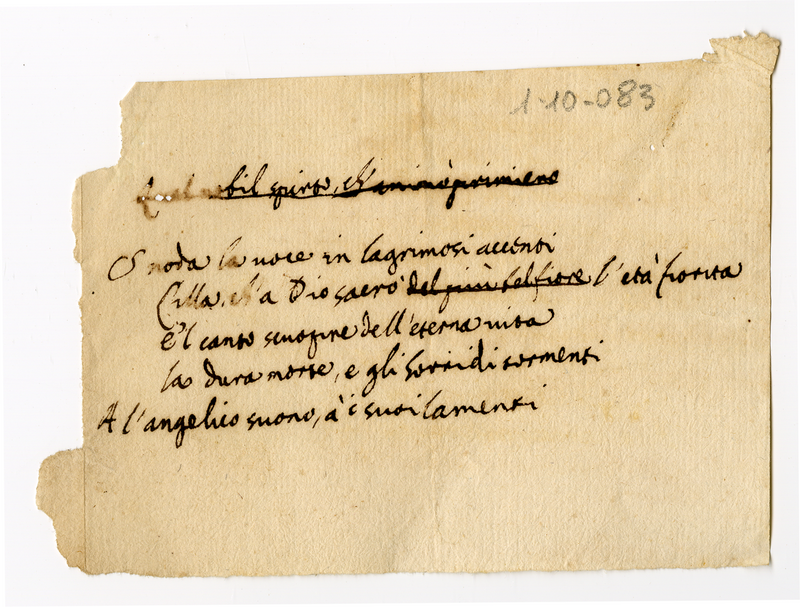 1-10-083
Qual nobil spirto, ch'animò primiero
Snoda la voce in lagrimosi accenti
Cilla, ch'a Dio sacrò del più bel fiore l'età fiorita
e'l canto scuopre dell'eterna vita
la dura morte, e gli horridi tormenti
A l'angelico suono, à i suoi lamenti